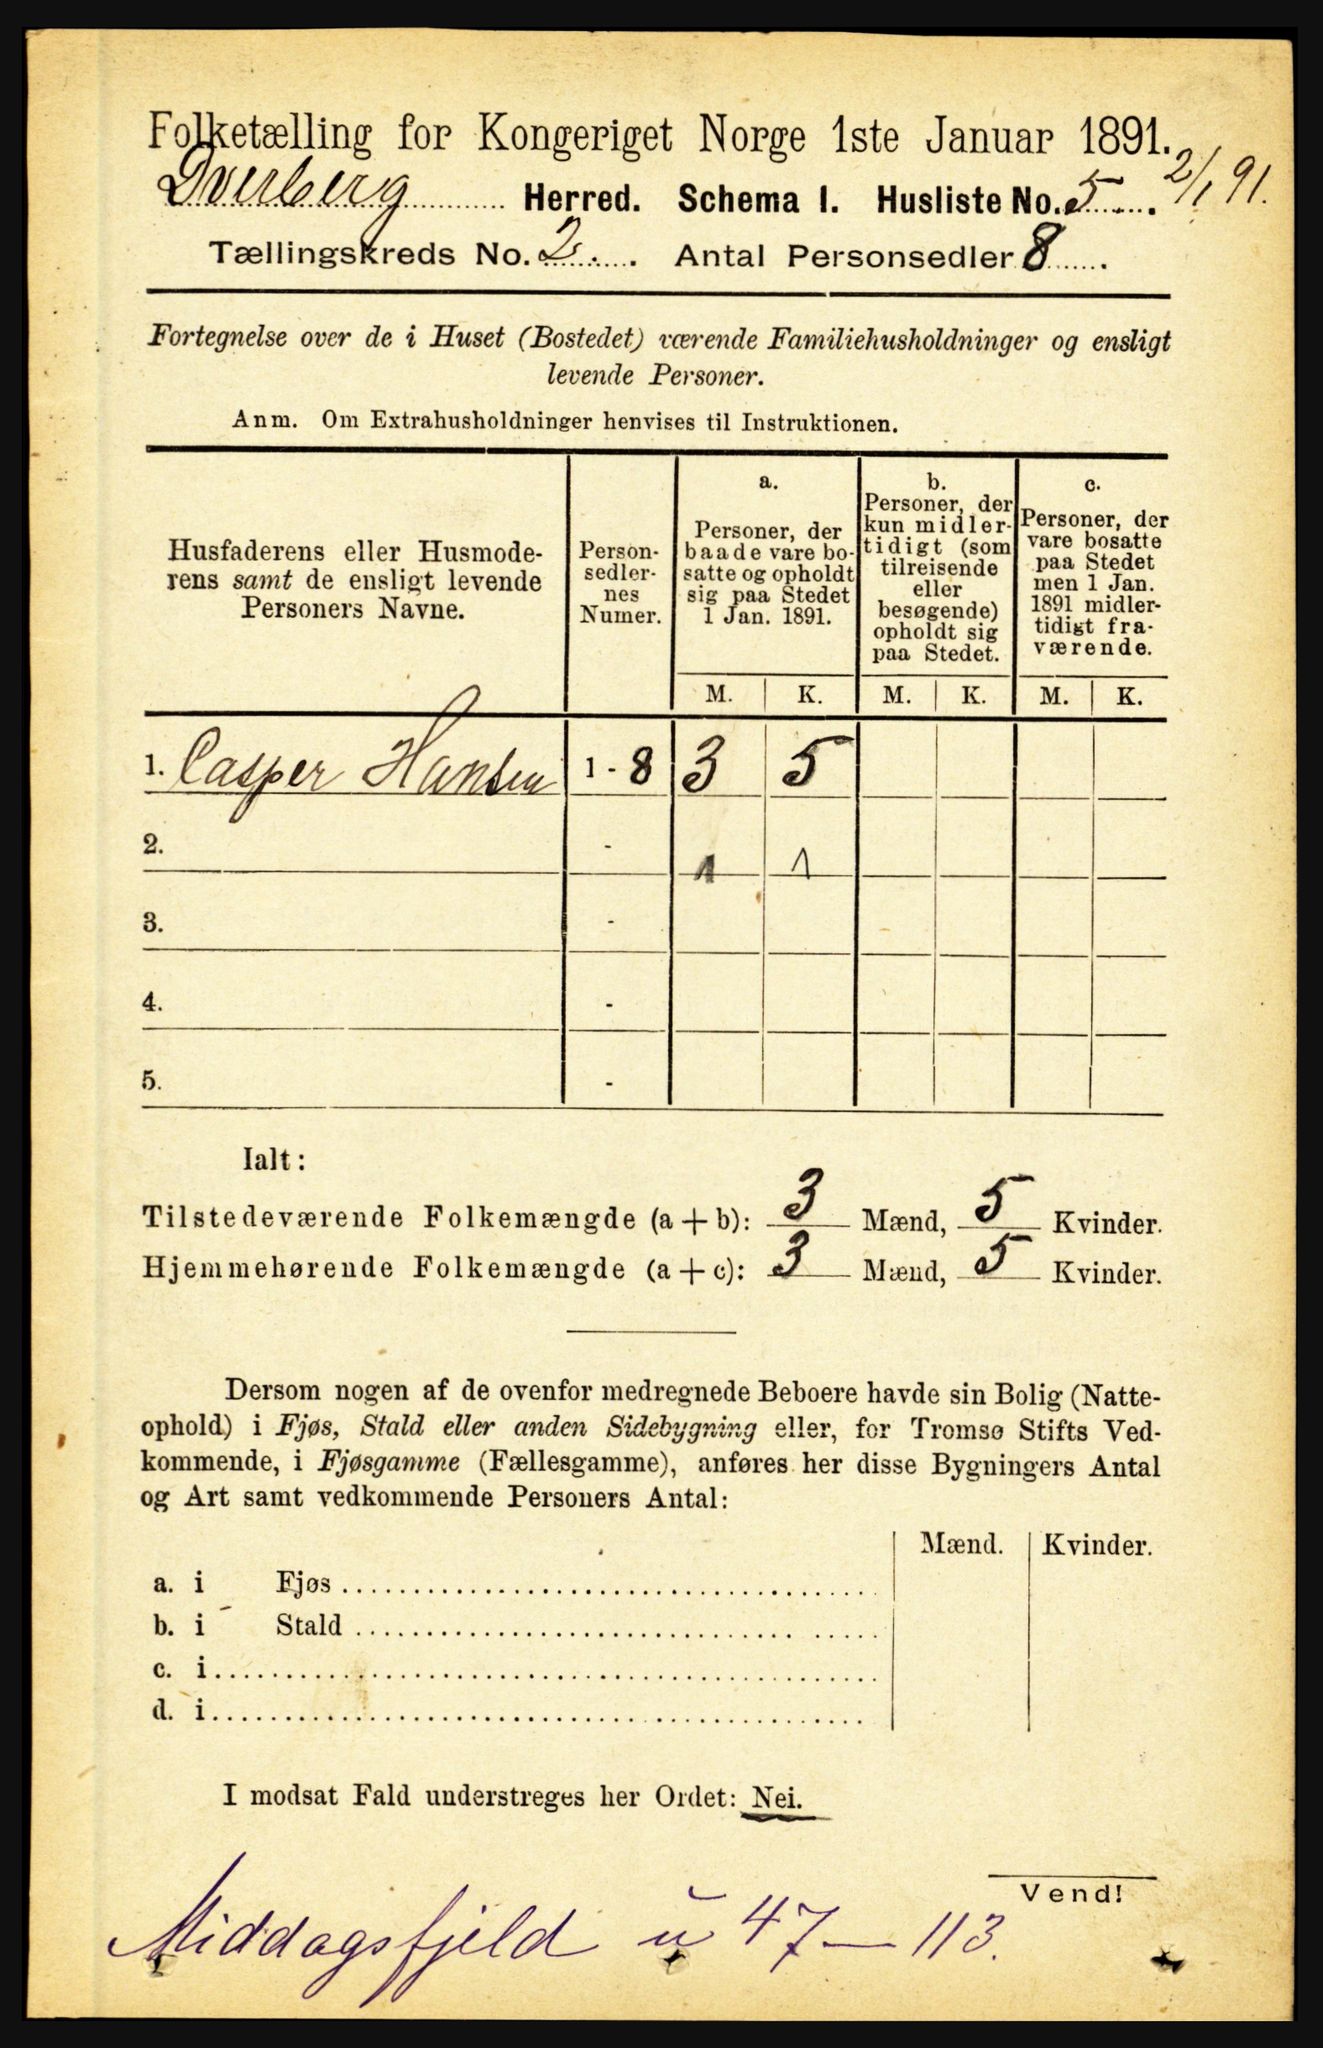 Folketælling for Kongeriget Norge 1ste Januar 1891.
Dverberg Herred. Schema I. Husliste No. 5. 2/1 91.
Tællingskreds No. 2. Antal Personsedler 8.
Fortegnelse over de i Huset (Bostedet) værende Familiehusholdninger og ensligt
levende Personer.
Anm. Om Extrahusholdninger henvises til Instruktionen.
Husfaderens eller Husmode-
rens samt de ensligt levende
Personers Navne.
Person-
sedler-
nes
Numer.
a.
Personer, der
baade vare bo-
satte og opholdt
sig paa Stedet
1 Jan. 1891.
b.
Personer, der
kun midler-
tidigt (som
tilreisende
eller
besøgende)
opholdt sig
paa Stedet.
c.
Personer, der
vare bosatte
paa Stedet
men 1 Jan.
1891 midler-
tidigt fra-
værende.
M. K. M. K. M. K.
1. Casper Hansen 1 - 8 3 5
2. - 1 1
3. -
4. -
5. -
Ialt:
Tilstedeværende Folkemængde (a + b): 3 Mænd, 5 Kvinder.
Hjemmehørende Folkemængde (a + c): 3 Mænd, 5 Kvinder.
Dersom nogen af de ovenfor medregnede Beboere havde sin Bolig (Natte-
ophold) i Fjøs, Stald eller anden Sidebygning eller, for Tromsø Stifts Ved-
kommende, i Fjøsgamme (Fællesgamme), anføres her disse Bygningers Antal
og Art samt vedkommende Personers Antal:
Mænd. Kvinder.
a. i Fjøs
b. i Stald
c. i
d. i
I modsat Fald understreges her Ordet: Nei.
Vend!
Middagsfjeld u 47 — 113.